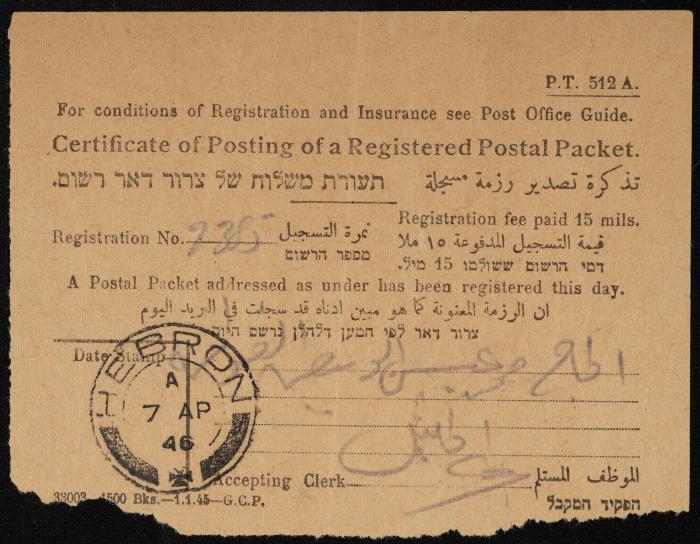 P.T. 512 A.
For conditions of Registration and Insurance see Post Office Guide.
Certificate of Posting of a Registered Postal Packet.
תעודת משלוח של צרור דאר רשום. تذكرة تصدير رزمة مسجلة
Registration fee paid 15 mils.
Registration No. نمرة التسجيل قيمة التسجيل المدفوعة ١٥ ملا
מספר הרשום דמי הרשום ששולמו 15 מיל.
A Postal Packet addressed as under has been registered this day.
ان الرزمة المعنونة كما هو مبين ادناه قد سجلت في البريد اليوم
צרור דאר לפי המען דלהלן נרשם היום
Date Stamp
الحاج
HEBRON
A
7 AP
46
Accepting Clerk الموظف المستلم
הפקיד המקבל
33003—4500 Bks.—1.1.45—G.C.P.